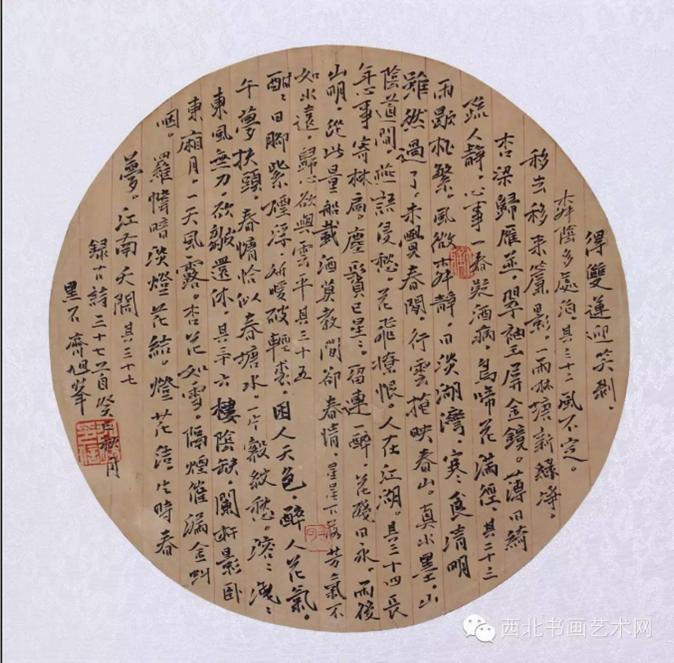 得雙蓮迎笑剥。
陰多處泊其三十二風不定。
移去移來簾影。雨林塘新綠淨。
杏梁歸雁並。翠袖玉屏金鏡。薄日綺
疏人靜。心事一春疑酒病。鳥啼花滿徑。其三十三
雨歇花繁。風微靜。日淡湖灣。寒食清明
雖然過了。未覺春閒。行雲掩映春山。真水墨。山
陰道間。燕語侵愁。花飛撩恨。人在江湖。其三十四長
年心事寄林扃。塵鬢已星星。留連一醉。花殘日永。雨後
山明。從此量船載酒莫教閒卻春情。
如水遠。歸心欲與雲平其三十五
酣酣日腳紫煙浮妍暖破輕裘。困人天色。醉人花氣。
午夢扶頭。春慵恰似春塘水。一片縠紋愁。溶溶
東風無力。欲皺還休。其三十六樓陰缺。闌干影臥
東廂月。一天風露。杏花如雪。隔煙催漏金虯
咽。羅幃暗淡燈花結。燈花結片時春
夢。江南天闊其三十七
錄古詩三十七首癸巳秋月
黑石齊旭峯
西北书画艺术网